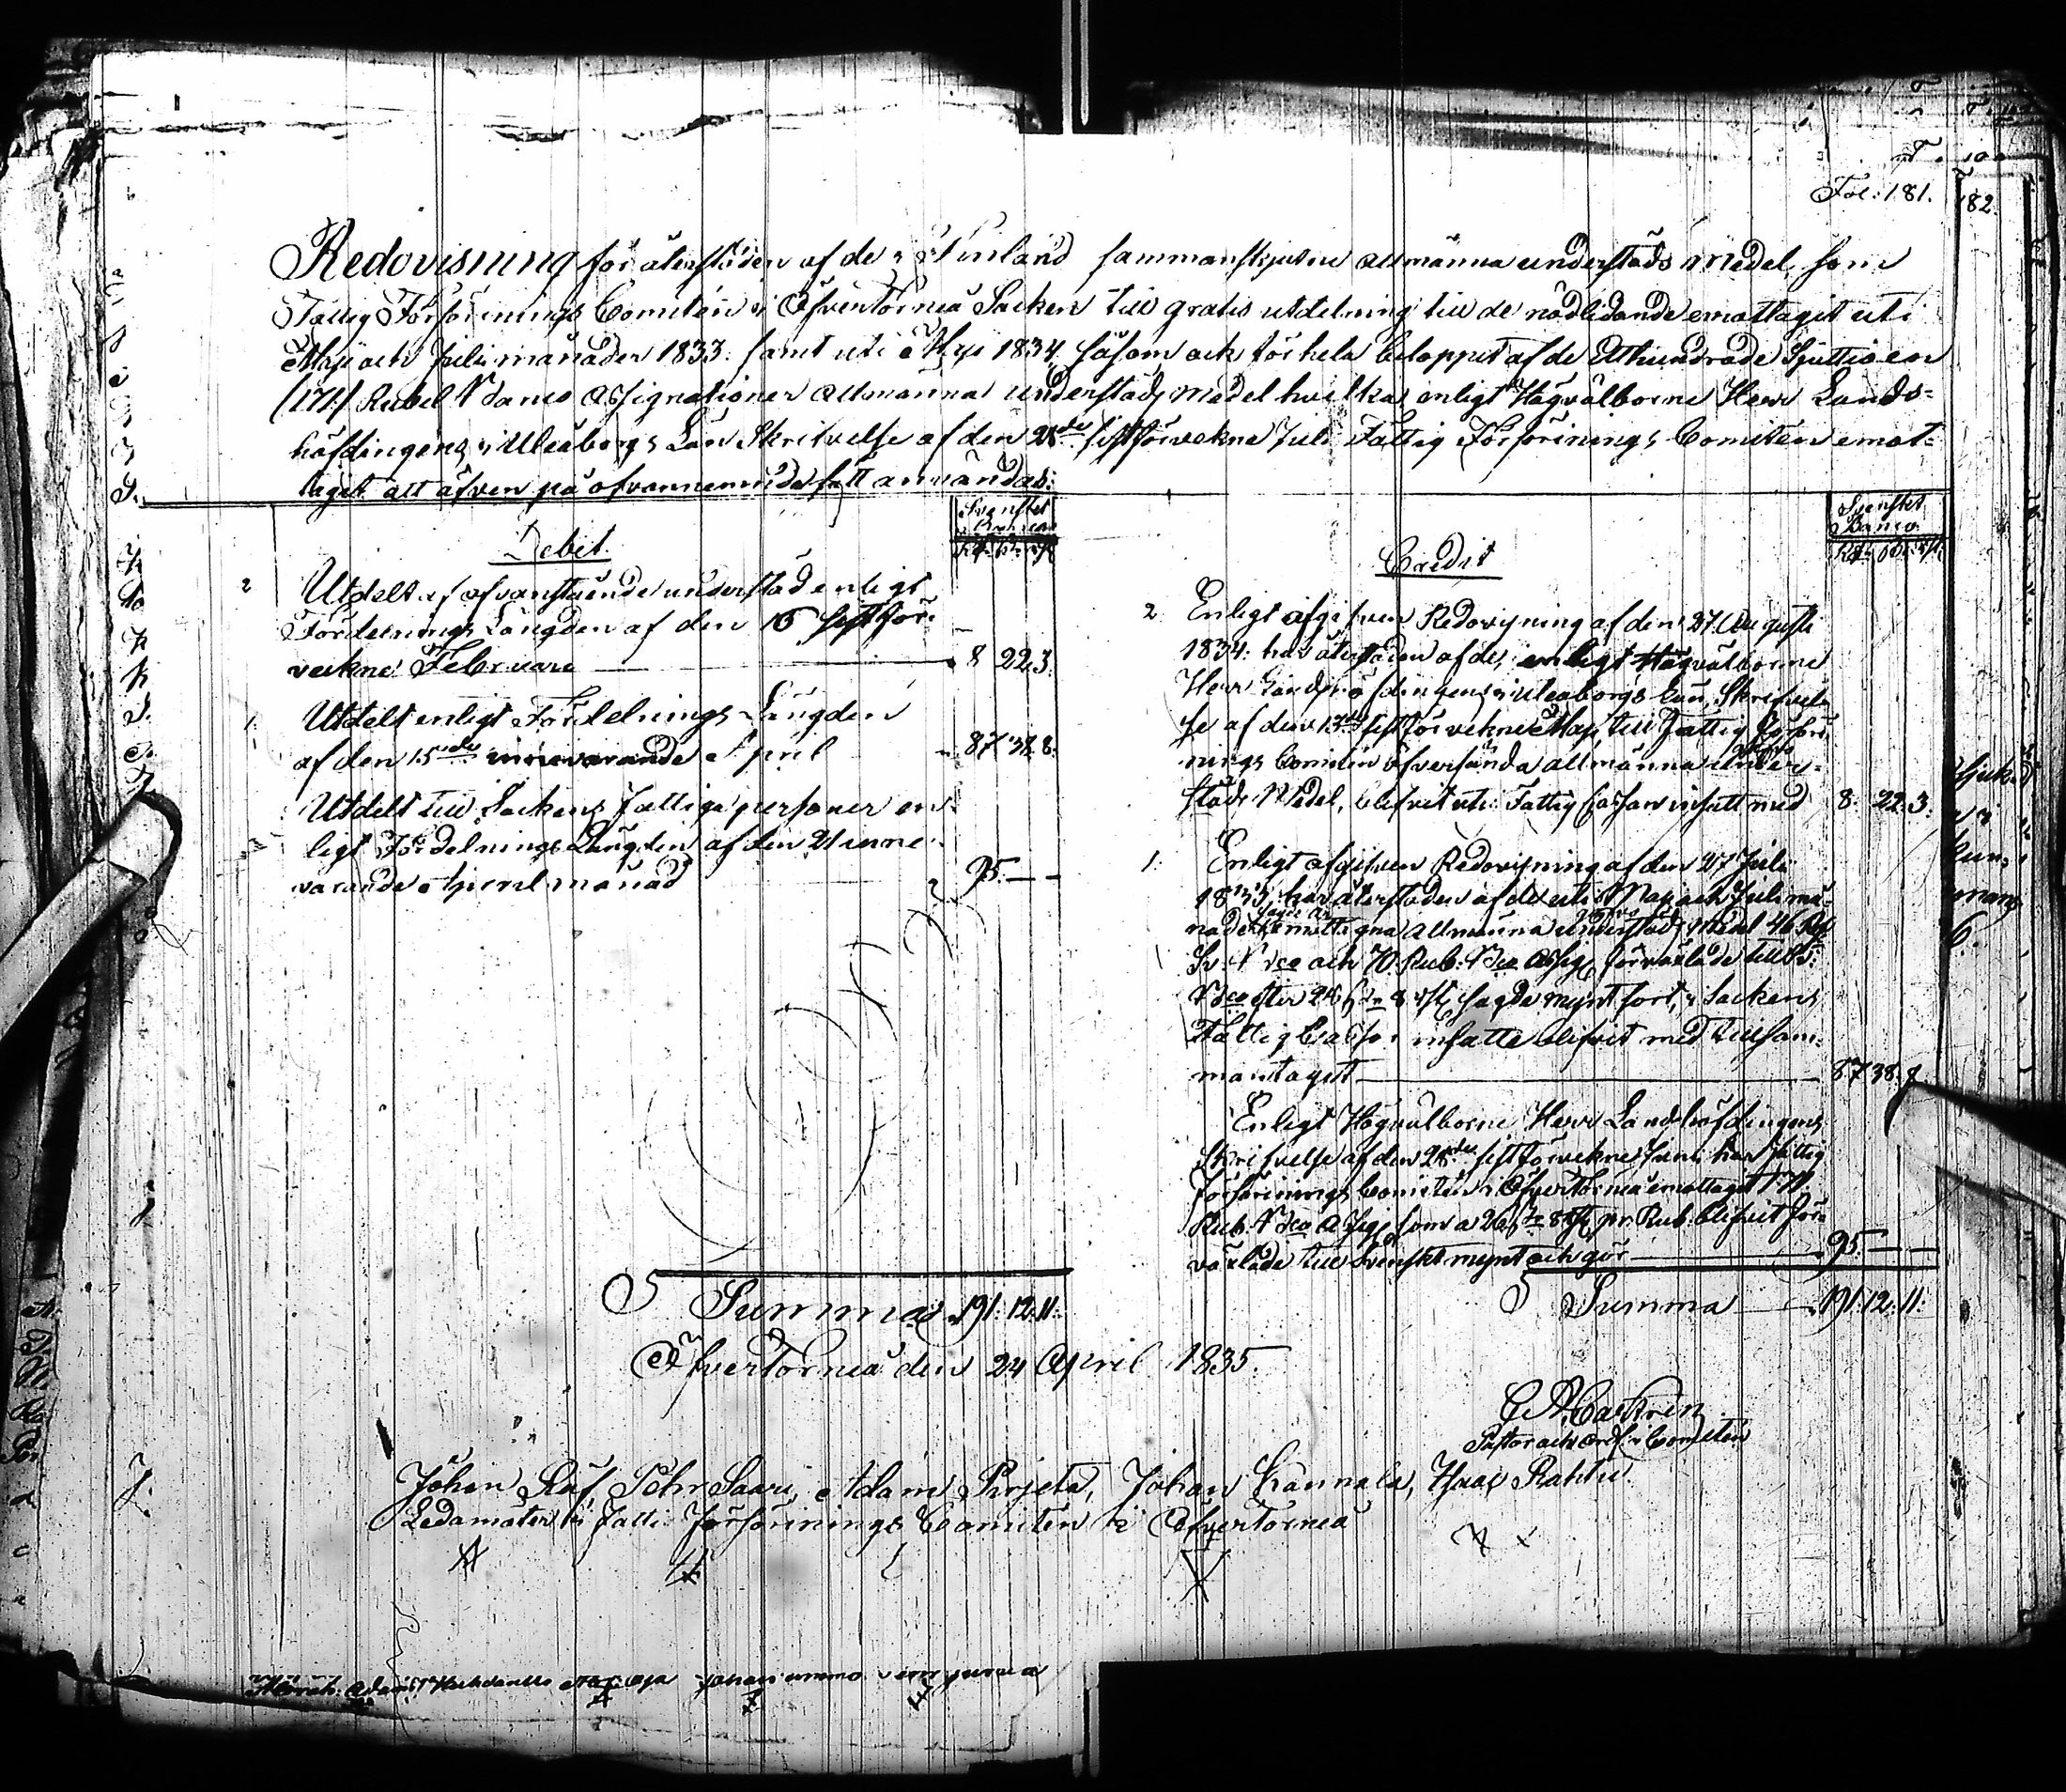 Fol: 181.
182
Redovisning för återstoden af de i Finland sammanskjutne allmänna understöds Medel, som
Fattig Försörjnings Comitén i Öfvertorneå Socken till gratis utdelning till de nödlidande emottagit uti
Maji och Julii månader 1833. samt uti Maji 1834, såsom ock för hela beloppet af de Etthundrade Sjuttio en
/171/ Rubel Banco Assignationer allmänna understöds medel hvilka enligt Högvälborne Herr Lands-
höfdingens i Uleåborgs Län Skrifvelse af den 28de sistförvekne Juli Fattig Försörjnings Comitén emot-
tagit att äfven på ofvannemnde sätt användas:
Svenskt
Banco
Debit.
2 Utdelt af ofvanstående understöd enligt
Fördelnings Längden af den 16 sistför-
vekne Februari 8 22 3.
1. Utdelt enligt Fördelnings Längden
af den 15de innevarande April 87 38 8.
Utdelt till Sockens fattiga personer en-
ligt Fördelnings Längden af den 21 inne-
varande April månad 95. — —
Summa 191. 12. 11.
Svenskt
Banco
Credit
2. Enligt afgifven Redovisning af den 27 Augusti
1834. har återstoden af de, enligt Högvälborne
Herr Landshöfdingens i Uleåborgs Län, Skrifvel-
se af den 13de sistförvekne Maji till Fattig Försör-
nings Comitén öfversända allmänna under-
stöds Medel, blifvit uti Fattig Cassan insatt med 8. 22. 3.
1. Enligt afgifven Redovisning af den 27 Juli
1833, har återstoden af de uti Maji och Juli må-
nader emottagna allmänna understöds medel 46 Rdr
Sv. Bco och 70 Rub. Bco Assig. förvexlade till Sv.
Bco efter 26 s. 8 rst. sagde myntsort, i Sockens
Fattig Cassa insatte blifvit med tillsam-
mantaget 87 38. 8
Enligt Högvälborne Herr Landshöfdingens
Skrifvelse af den 28de sistförvekne Juni har Fattig
Försörjnings Comitén i Öfvertorneå emottagit 171
Rub. Bco Assig. som a 26 s. 8 rst. pr. Rub. blifvit för-
vexlade till Svenskt mynt och gör 95. — —
Summa 191. 12. 11.
Öfvertorneå den 24 April 1835.
Castrén
Pastor och Ordf. i Comitén
Johan Pehr Saari, Adam Pirjetä, Johan Kannala, Isaac Rahtu
Ledamöter i Fattig Försörjnings Comitén i Öfvertorneå